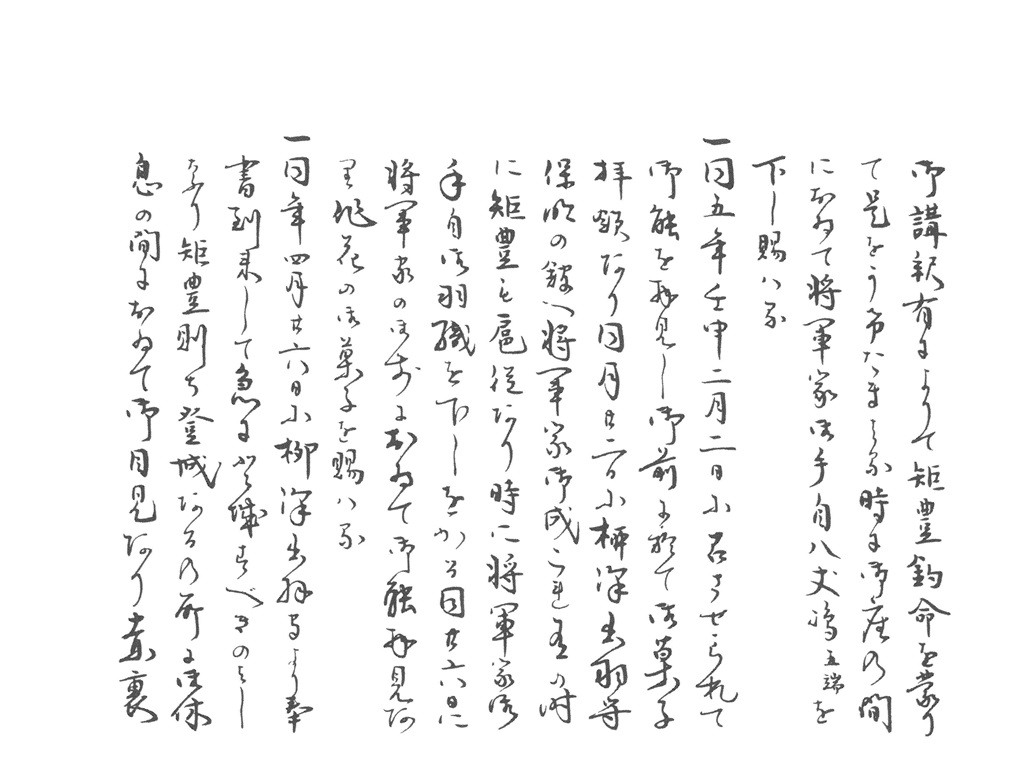 御講釈有によりて矩豊釣命を蒙り
て是をうけたまはる時に御座の間
におゐて将軍家御手自八丈嶋五端を
下し賜ハる
一同五年壬申二月二日に召させられて
御能を拝見し御前に於て御菓子
拝領あり同月廿二日に柳沢出羽守
保明の館へ将軍家御成これ有の時
に矩豊も扈従たり時に将軍家御
手自御羽織を下しをかる同廿六日に
将軍家の御前におゐて御能拝見あ
り作花の御菓子を賜ハる
一同年四月廿六日に柳沢出羽守より奉
書到来して急に登城すべきのよし
なり矩豊則ち登城あるの所に御休
息の間におゐて御目見あり素裏